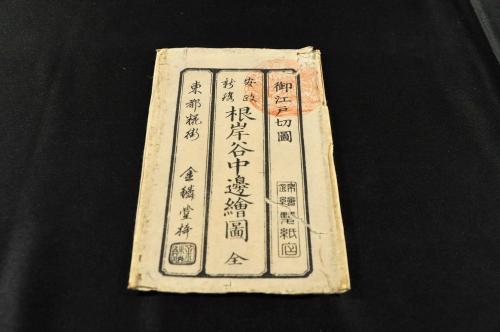 御江戸切圖
安政
新鐫
根岸谷中邊繪圖 全
東都糀街
金鱗堂梓